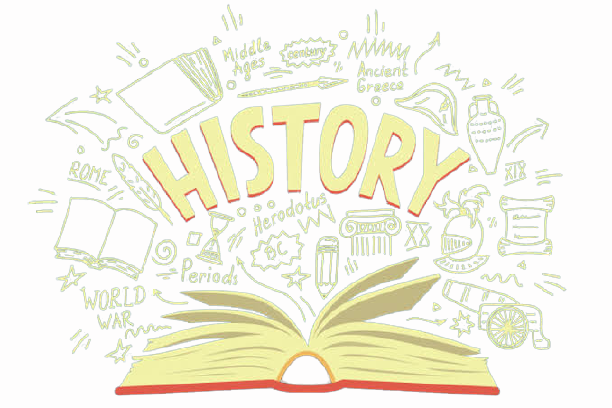 Middle
Ages
century
Ancient
Greece
HISTORY
ROME
XIX
Herodotus
BC
XX
Periods
WORLD
WAR